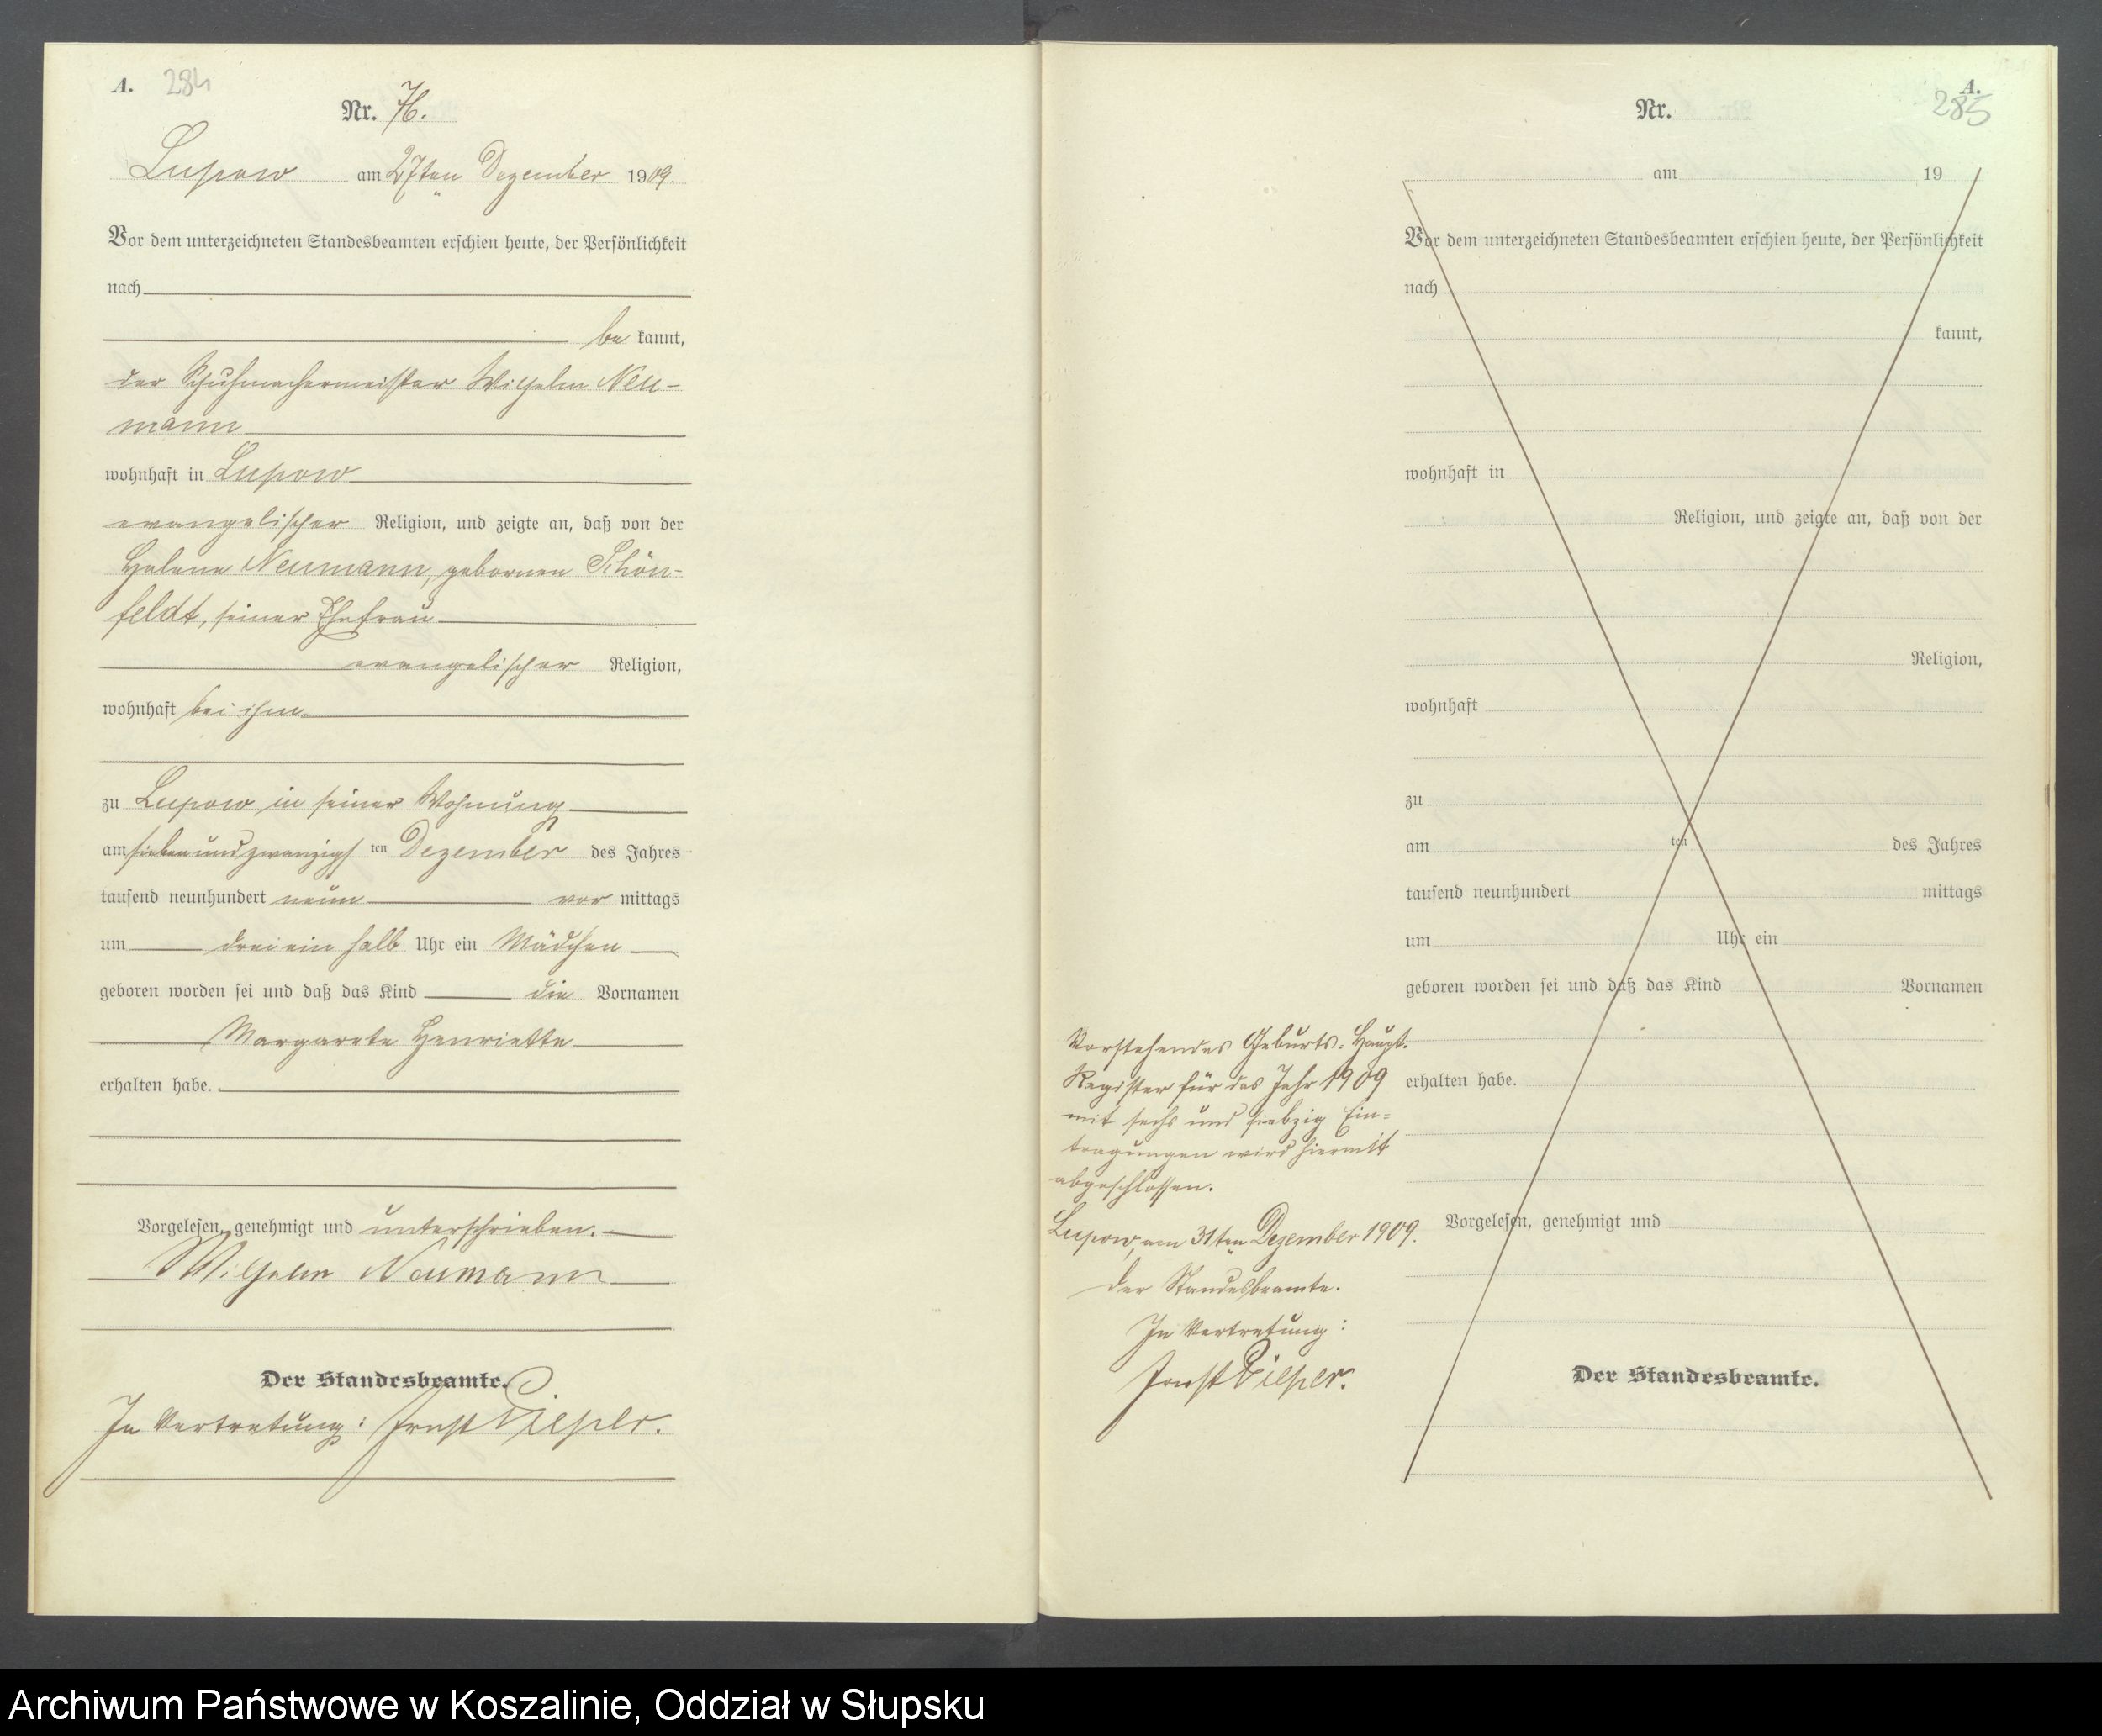 A. 284
Nr. 76.
Lupow am 27ten Dezember 1909.
Vor dem unterzeichneten Standesbeamten erschien heute, der Persönlichkeit
nach
be kannt,
der Schuhmachermeister Wilhelm Neu-
mann
wohnhaft in Lupow
evangelischer Religion, und zeigte an, daß von der
Helene Neumann, gebornen Schön-
feldt, seiner Ehefrau
evangelischer Religion,
wohnhaft bei ihm
zu Lupow in seiner Wohnung
am sieben und zwanzigs ten Dezember des Jahres
tausend neunhundert neun vor mittags
um drei ein halb Uhr ein Mädchen
geboren worden sei und daß das Kind die Vornamen
Margarete Henriette
erhalten habe.
Vorgelesen, genehmigt und unterschrieben.
Wilhelm Neumann
Der Standesbeamte.
In Vertretung: Ernst Pieper.
A.
285
Nr.
am 19
Vor dem unterzeichneten Standesbeamten erschien heute, der Persönlichkeit
nach
kannt,
wohnhaft in
Religion, und zeigte an, daß von der
Religion,
wohnhaft
zu
am ten des Jahres
tausend neunhundert mittags
um Uhr ein
geboren worden sei und daß das Kind Vornamen
erhalten habe.
Vorgelesen, genehmigt und
Der Standesbeamte.
Vorstehendes Geburts-Haupt-
Register für das Jahr 1909
mit sechs und siebzig Ein-
tragungen wird hiermit
abgeschlossen.
Lupow, am 31ten Dezember 1909.
Der Standesbeamte.
In Vertretung:
Ernst Pieper.
Archiwum Państwowe w Koszalinie, Oddział w Słupsku